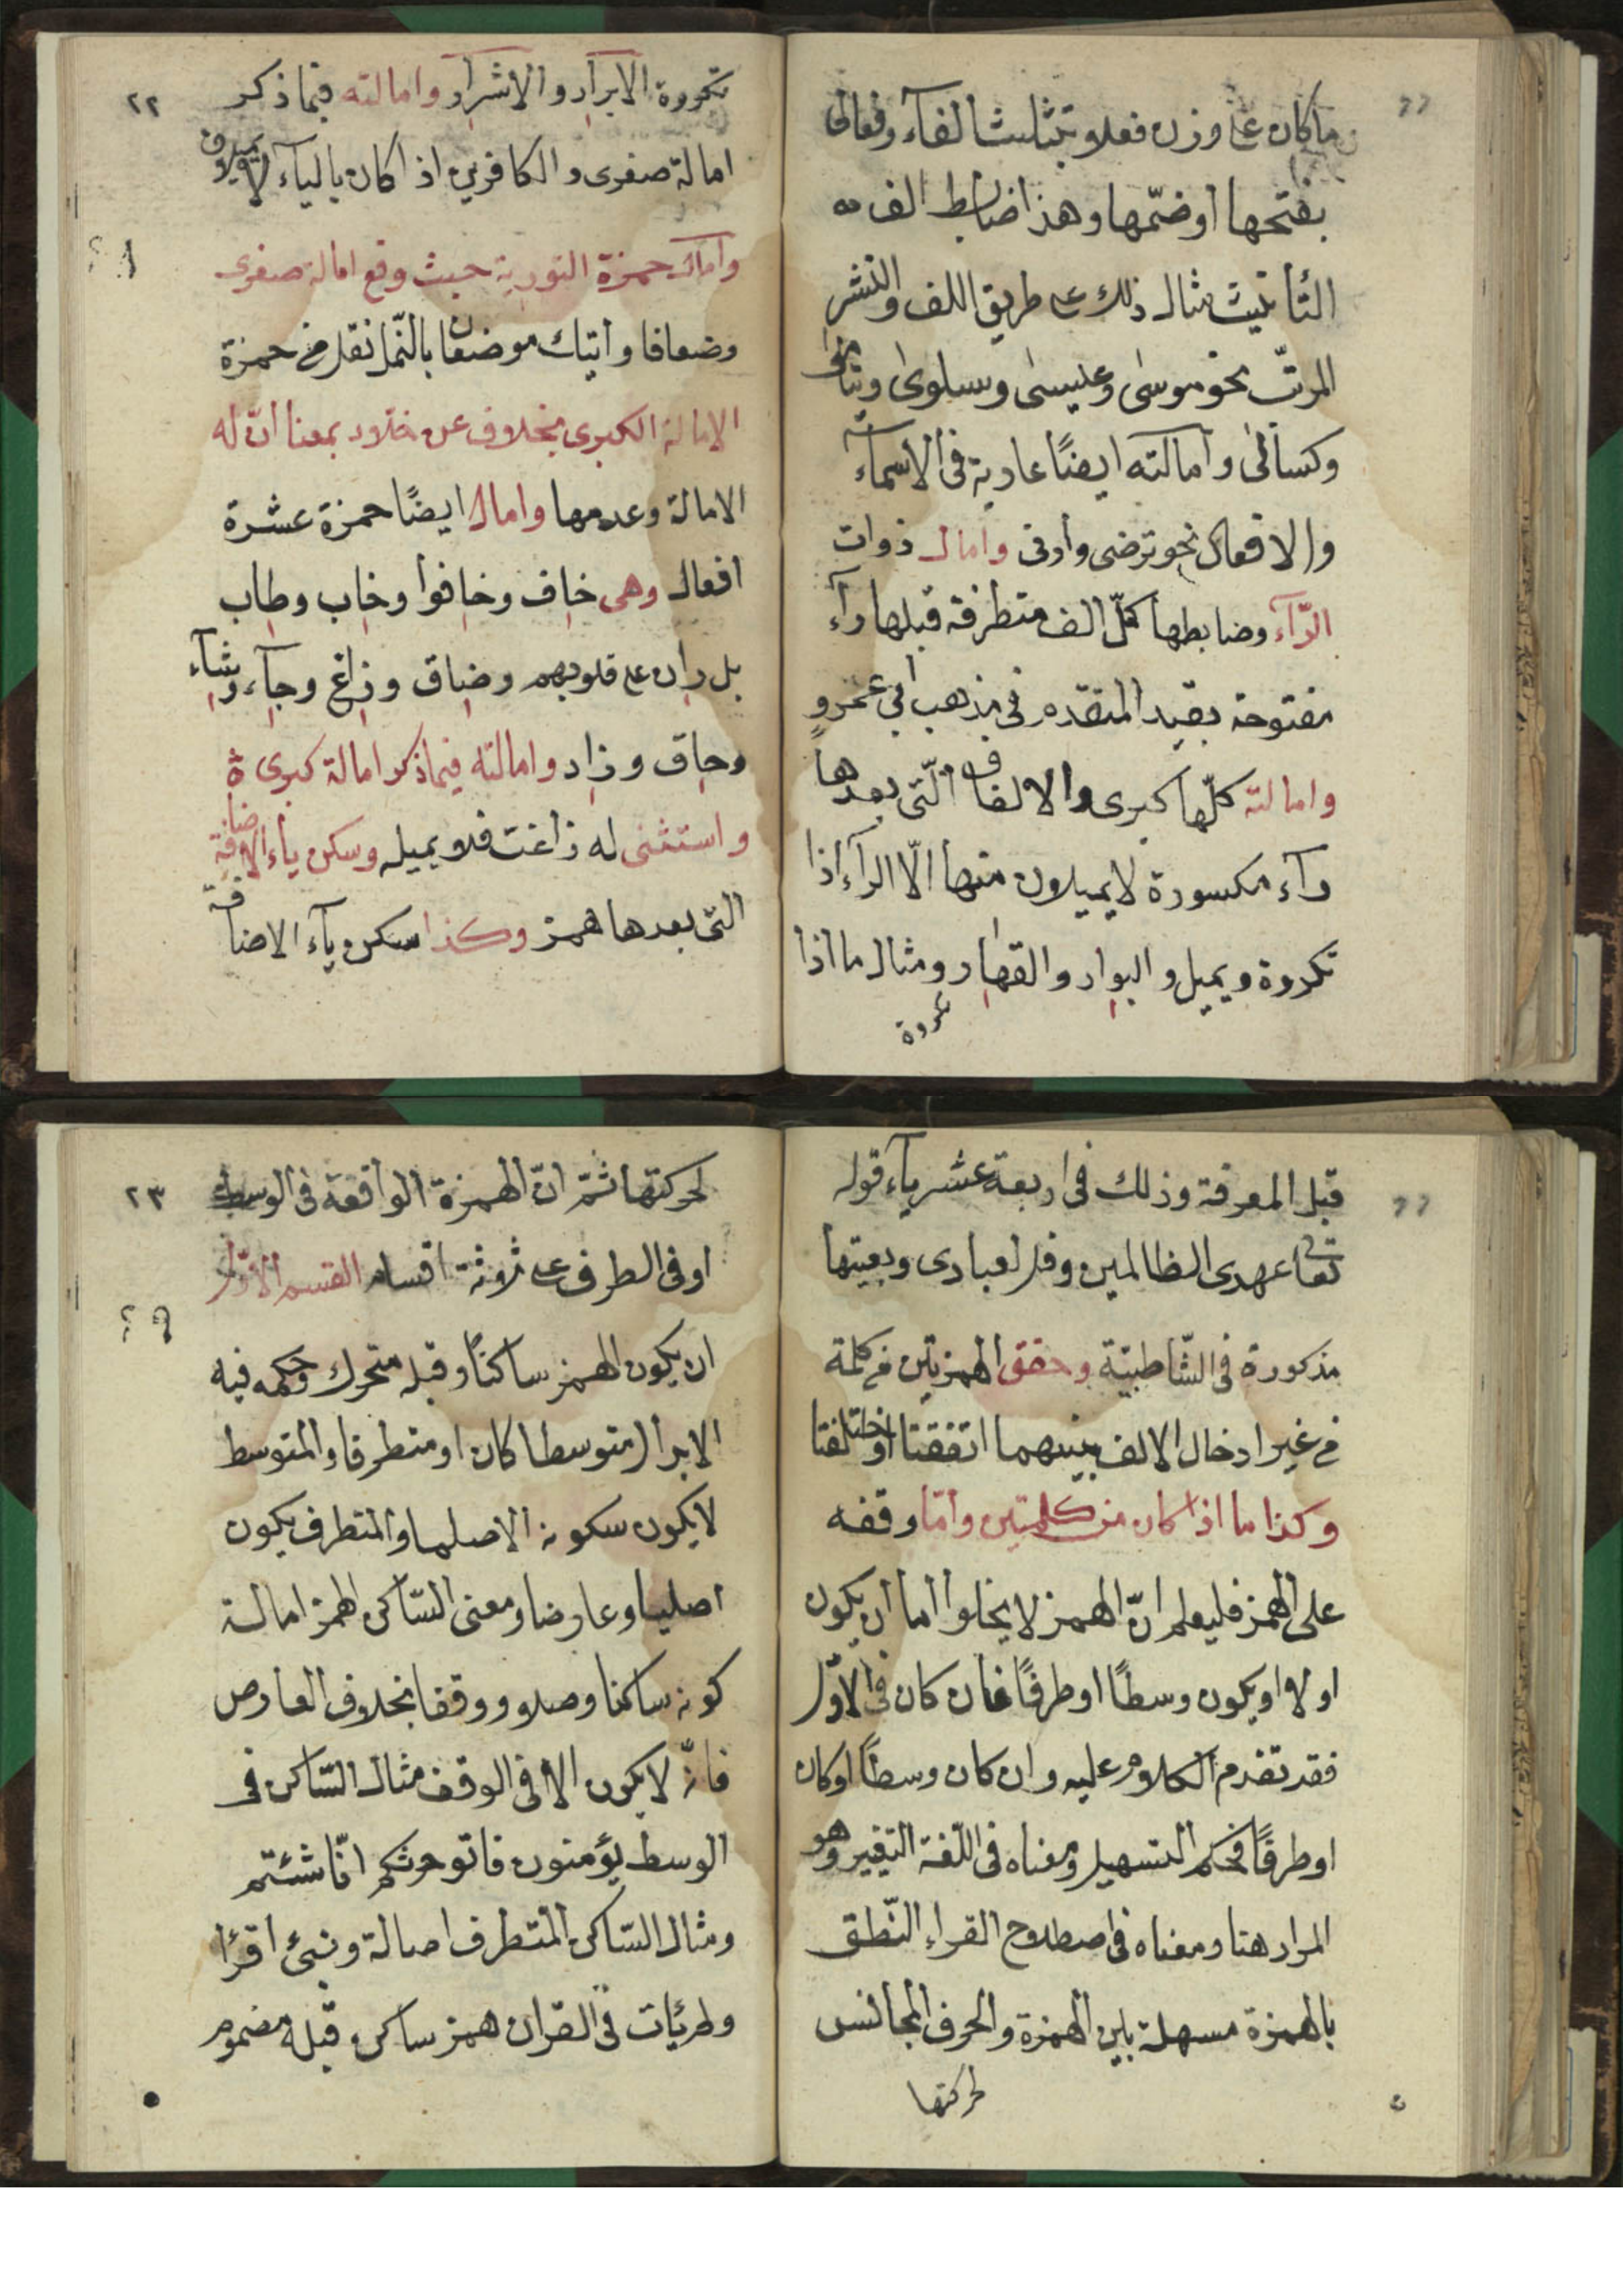 ما كان على وزن فعلو بتثليث الفآء وفعالى
بفتحها أو ضمّها وهذا ضابط الف
التأنيث مثال ذلك على طريق اللف والنشر
المرتّب نحو موسى وعيسى وسلوى ويتامى
وكسالى وأمالته ايضًا عارية فى الأسمآء
والافعال نحو ترضى وأدنى وأمال ذوات
الرّآء وضابطها كلّ الف متطرفة قبلها رآء
مفتوحة بقيد المتقدم فى مذهب أبى عمرو
وامالته كلّها كبرى والالفات الّتى بعدها
رآء مكسورة لا يميلون منها الّا الرآء اذا
تكررة ويميل والبوار والقهار ومثال ما اذا
تكررة
٢٢
تكررة الابرار والاشرار وامالته فيما ذكر
امالة صغرى والكافرين اذا كان باليآء لا يميلون
وأمال حمزة التورية حيث وقع امالة صغرى
وضعافا وأتيك موضعان بالنّمل نقل فى حمزة
الامالة الكبرى بخلاف عن خلاد بمعنا انّ له
الامالة وعدمها وامال ايضًا حمزة عشرة
افعال وهى خاف وخافوا وخاب وطاب
بل ران على قلوبهم وضاق وزاغ وجآء وشآء
وحاق وزاد وامالته فيما ذكر امالة كبرى
واستثنى له زاغت فلا يميله وسكن ياء الاضافة
التى بعدها همز وكذا سكن يآء الاضافة
قبل المعرفة وذلك فى اربعة عشر يآء قوله
تعا عهدى الظالمين وقل لعبادى وبقيتها
مذكورة فى الشّاطبيّة وحقق الهمزتين فى كلمة
فى غير ادخال الالف بينهما اتفقتا أو اختلفتا
وكذا ما اذا كان من كلمتين وأمّا وقفه
على الهمز فليعلم انّ الهمز لا يخلوا أما أن يكون
اولا او يكون وسطًا او طرفًا فان كان فى الأوّل
فقد تقدم الكلام عليه وان كان وسطًا او كان
او طرفًا فحكم التسهيل ومعناه فى اللّغة التغيير وهو
المراد هنا ومعناه فى اصطلاح القراء النّطق
بالهمزة مسهلة بين الهمزة والحرف المجانس
لحركتها
٢٣
لحركتها ثمّ انّ الهمزة الواقعة فى الوسط
او فى الطرف على ثلاثة اقسام القسم الأوّل
ان يكون الهمز ساكنًا وقبله متحرك وحكمه فيه
الابدال متوسطا كان او متطرفا والمتوسط
لا يكون سكونه الا اصليا والمتطرف يكون
اصليا وعارضا ومعنى السّاكن الهمز اصالة
كونه ساكنا وصلا ووقفا بخلاف العارض
فانّه لا يكون الا فى الوقف مثال السّاكن فى
الوسط يؤمنون فاتو حرثكم انّا شئتم
ومثال السّاكن المتطرف اصالة ونبئ اقرأ
ولم يأت فى القران همز ساكن قبله مضموم